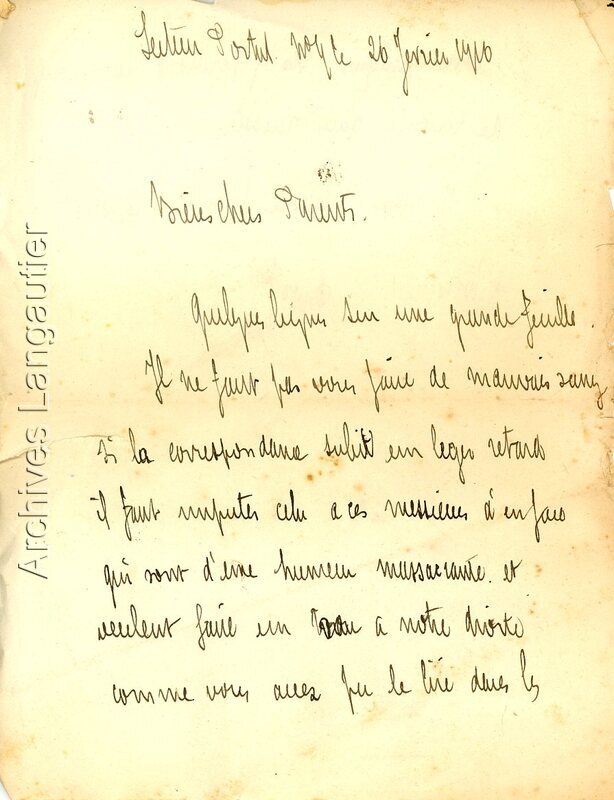 Secteur Postal le 26 Fevrier 1916
Biens chers Parents.
Quelques lignes sur une grande feuille.
Il ne faut pas vous faire de mauvais sang
si la correspondance subit un leger retard
il faut imputer cela a ces messieurs d'en face
qui sont d'une humeur massacrante. et
veulent faire un trou a notre droite
comme vous avez pu le lire dans les
Archives Langautier